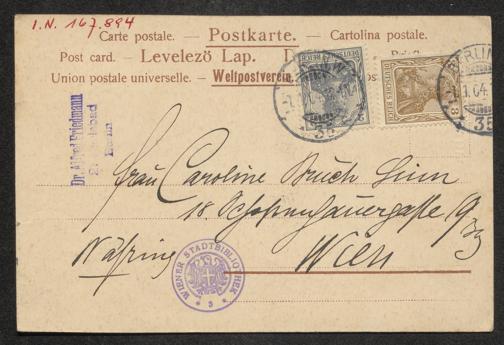 I.N. 167.894
Carte postale. — Postkarte. — Cartolina postale.
Post card. — Levelező Lap.
Union postale universelle. — Weltpostverein.
Dr. Alfred Friedmann
Berlin
DEUTSCHES REICH
DEUTSCHES REICH
BERLIN
35
35
Frau Caroline Bruch Sinn
18 Schopenhauergasse
Währing
Wien
WIENER STADTBIBLIOTHEK